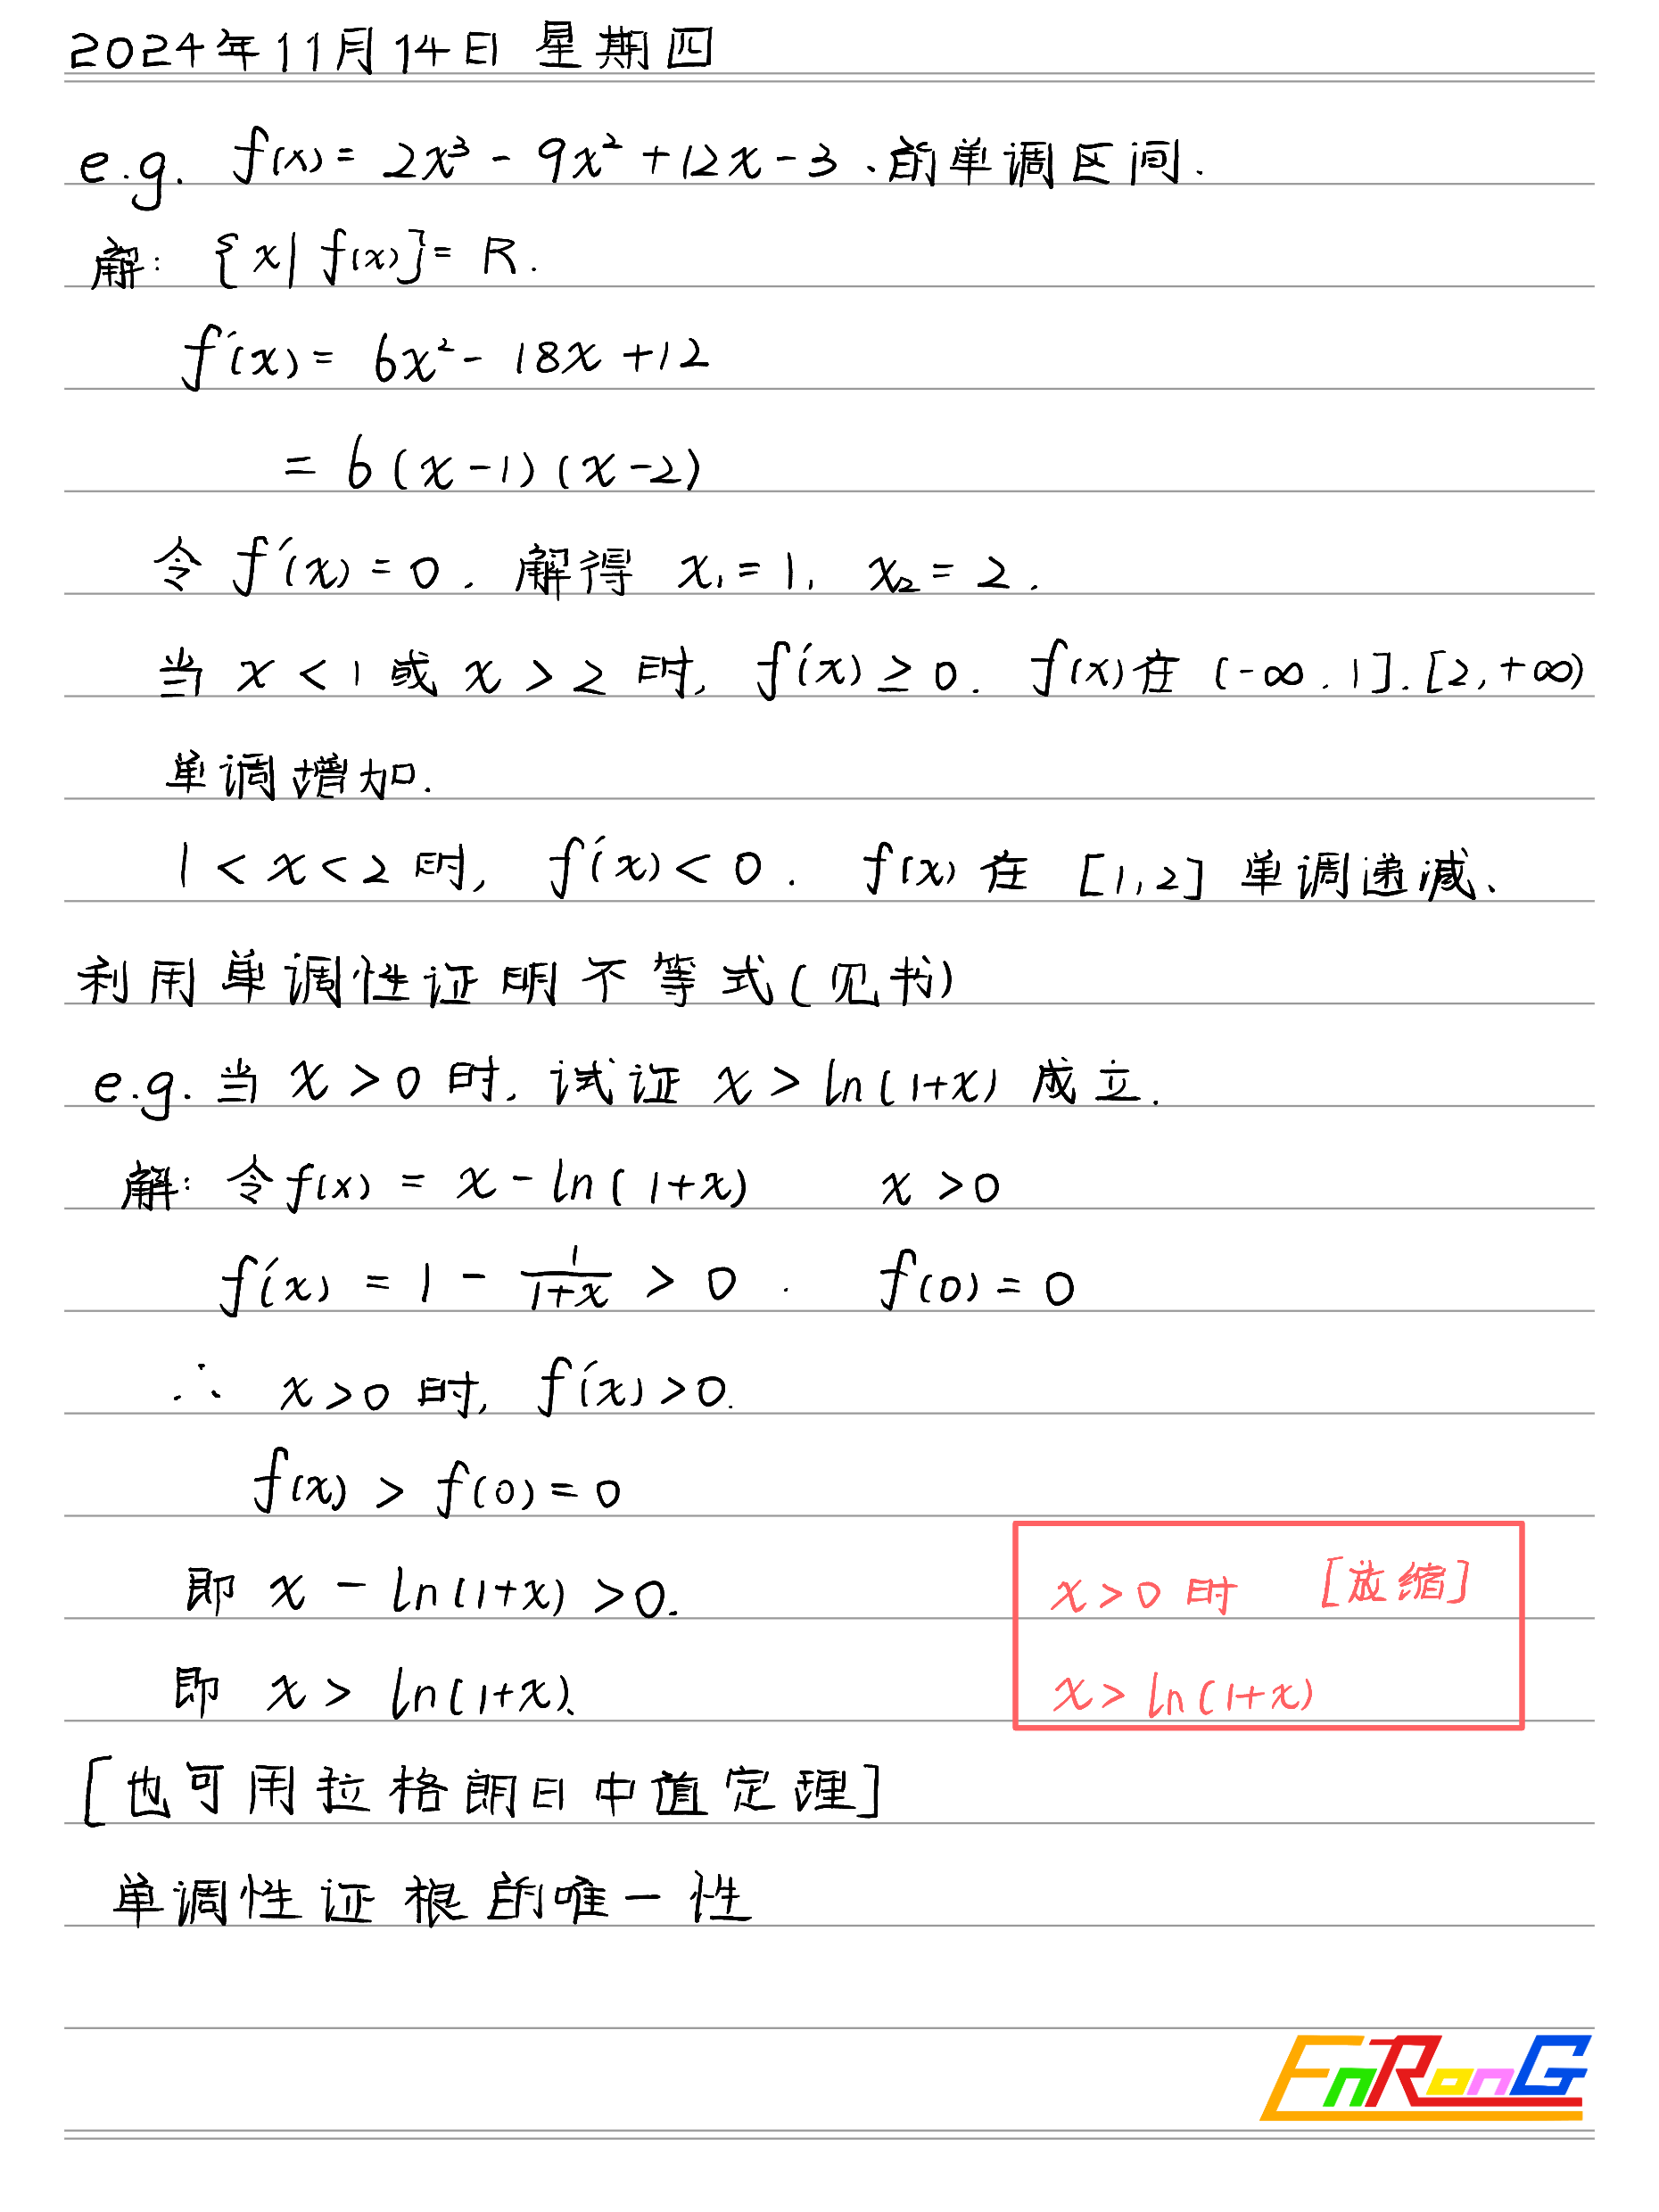 2024年11月14日 星期四
e.g. f(x) = 2x³ - 9x² + 12x - 3、的单调区间.
解: {x| f(x)} = R.
f′(x) = 6x² - 18x + 12
= 6(x-1)(x-2)
令 f′(x) = 0. 解得 x₁ = 1, x₂ = 2.
当 x < 1 或 x > 2 时, f′(x) ≥ 0. f(x) 在 (-∞. 1]. [2, +∞)
单调增加.
1 < x < 2 时, f′(x) < 0. f(x) 在 [1, 2] 单调递减、
利用单调性证明不等式(见书)
e.g. 当 x > 0 时, 试证 x > ln(1+x) 成立.
解: 令 f(x) = x - ln(1+x) x > 0
f′(x) = 1 - 1/(1+x) > 0. f(0) = 0
∴ x > 0 时, f′(x) > 0.
f(x) > f(0) = 0
即 x - ln(1+x) > 0.
即 x > ln(1+x)、
x > 0 时 [放缩]
x > ln(1+x)
[也可用拉格朗日中值定理]
单调性证根的唯一性
EnRonG